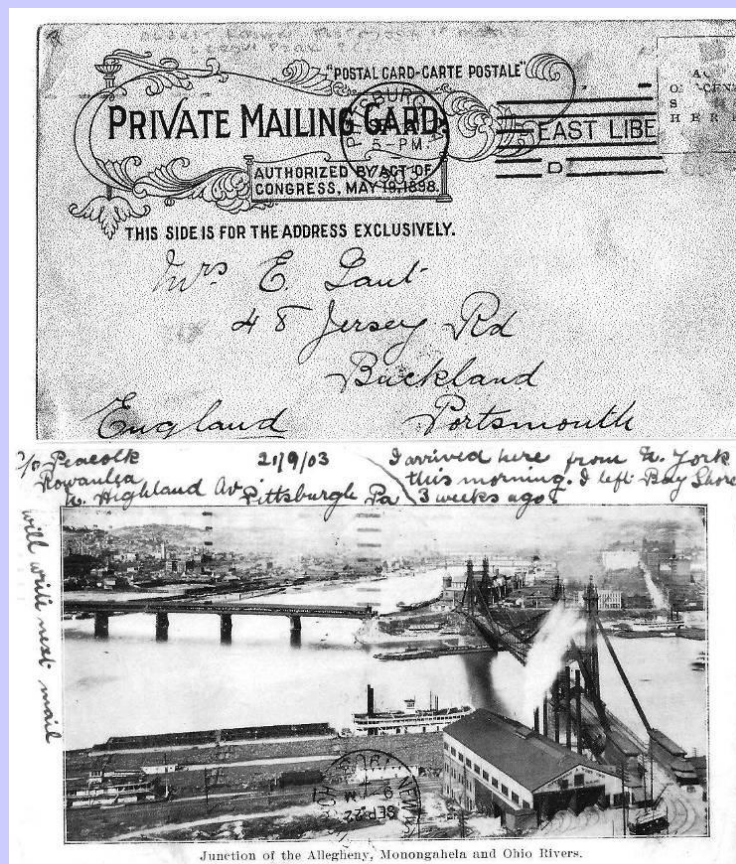 "POSTAL CARD-CARTE POSTALE"
PRIVATE MAILING CARD.
AUTHORIZED BY ACT OF
CONGRESS, MAY 19, 1898.
THIS SIDE IS FOR THE ADDRESS EXCLUSIVELY.
PITTSBURG
5-PM
EAST LIBE
D
HERE
Mrs E. Laut
48 Jersey Rd
Buckland
England Portsmouth
c/o Peacock
Rowanlea
N. Highland Av Pittsburgh Pa
21/9/03
I arrived here from N. York
this morning. I left Bay Shore
3 weeks ago.
will write next mail
SEP 22
Junction of the Allegheny, Monongahela and Ohio Rivers.